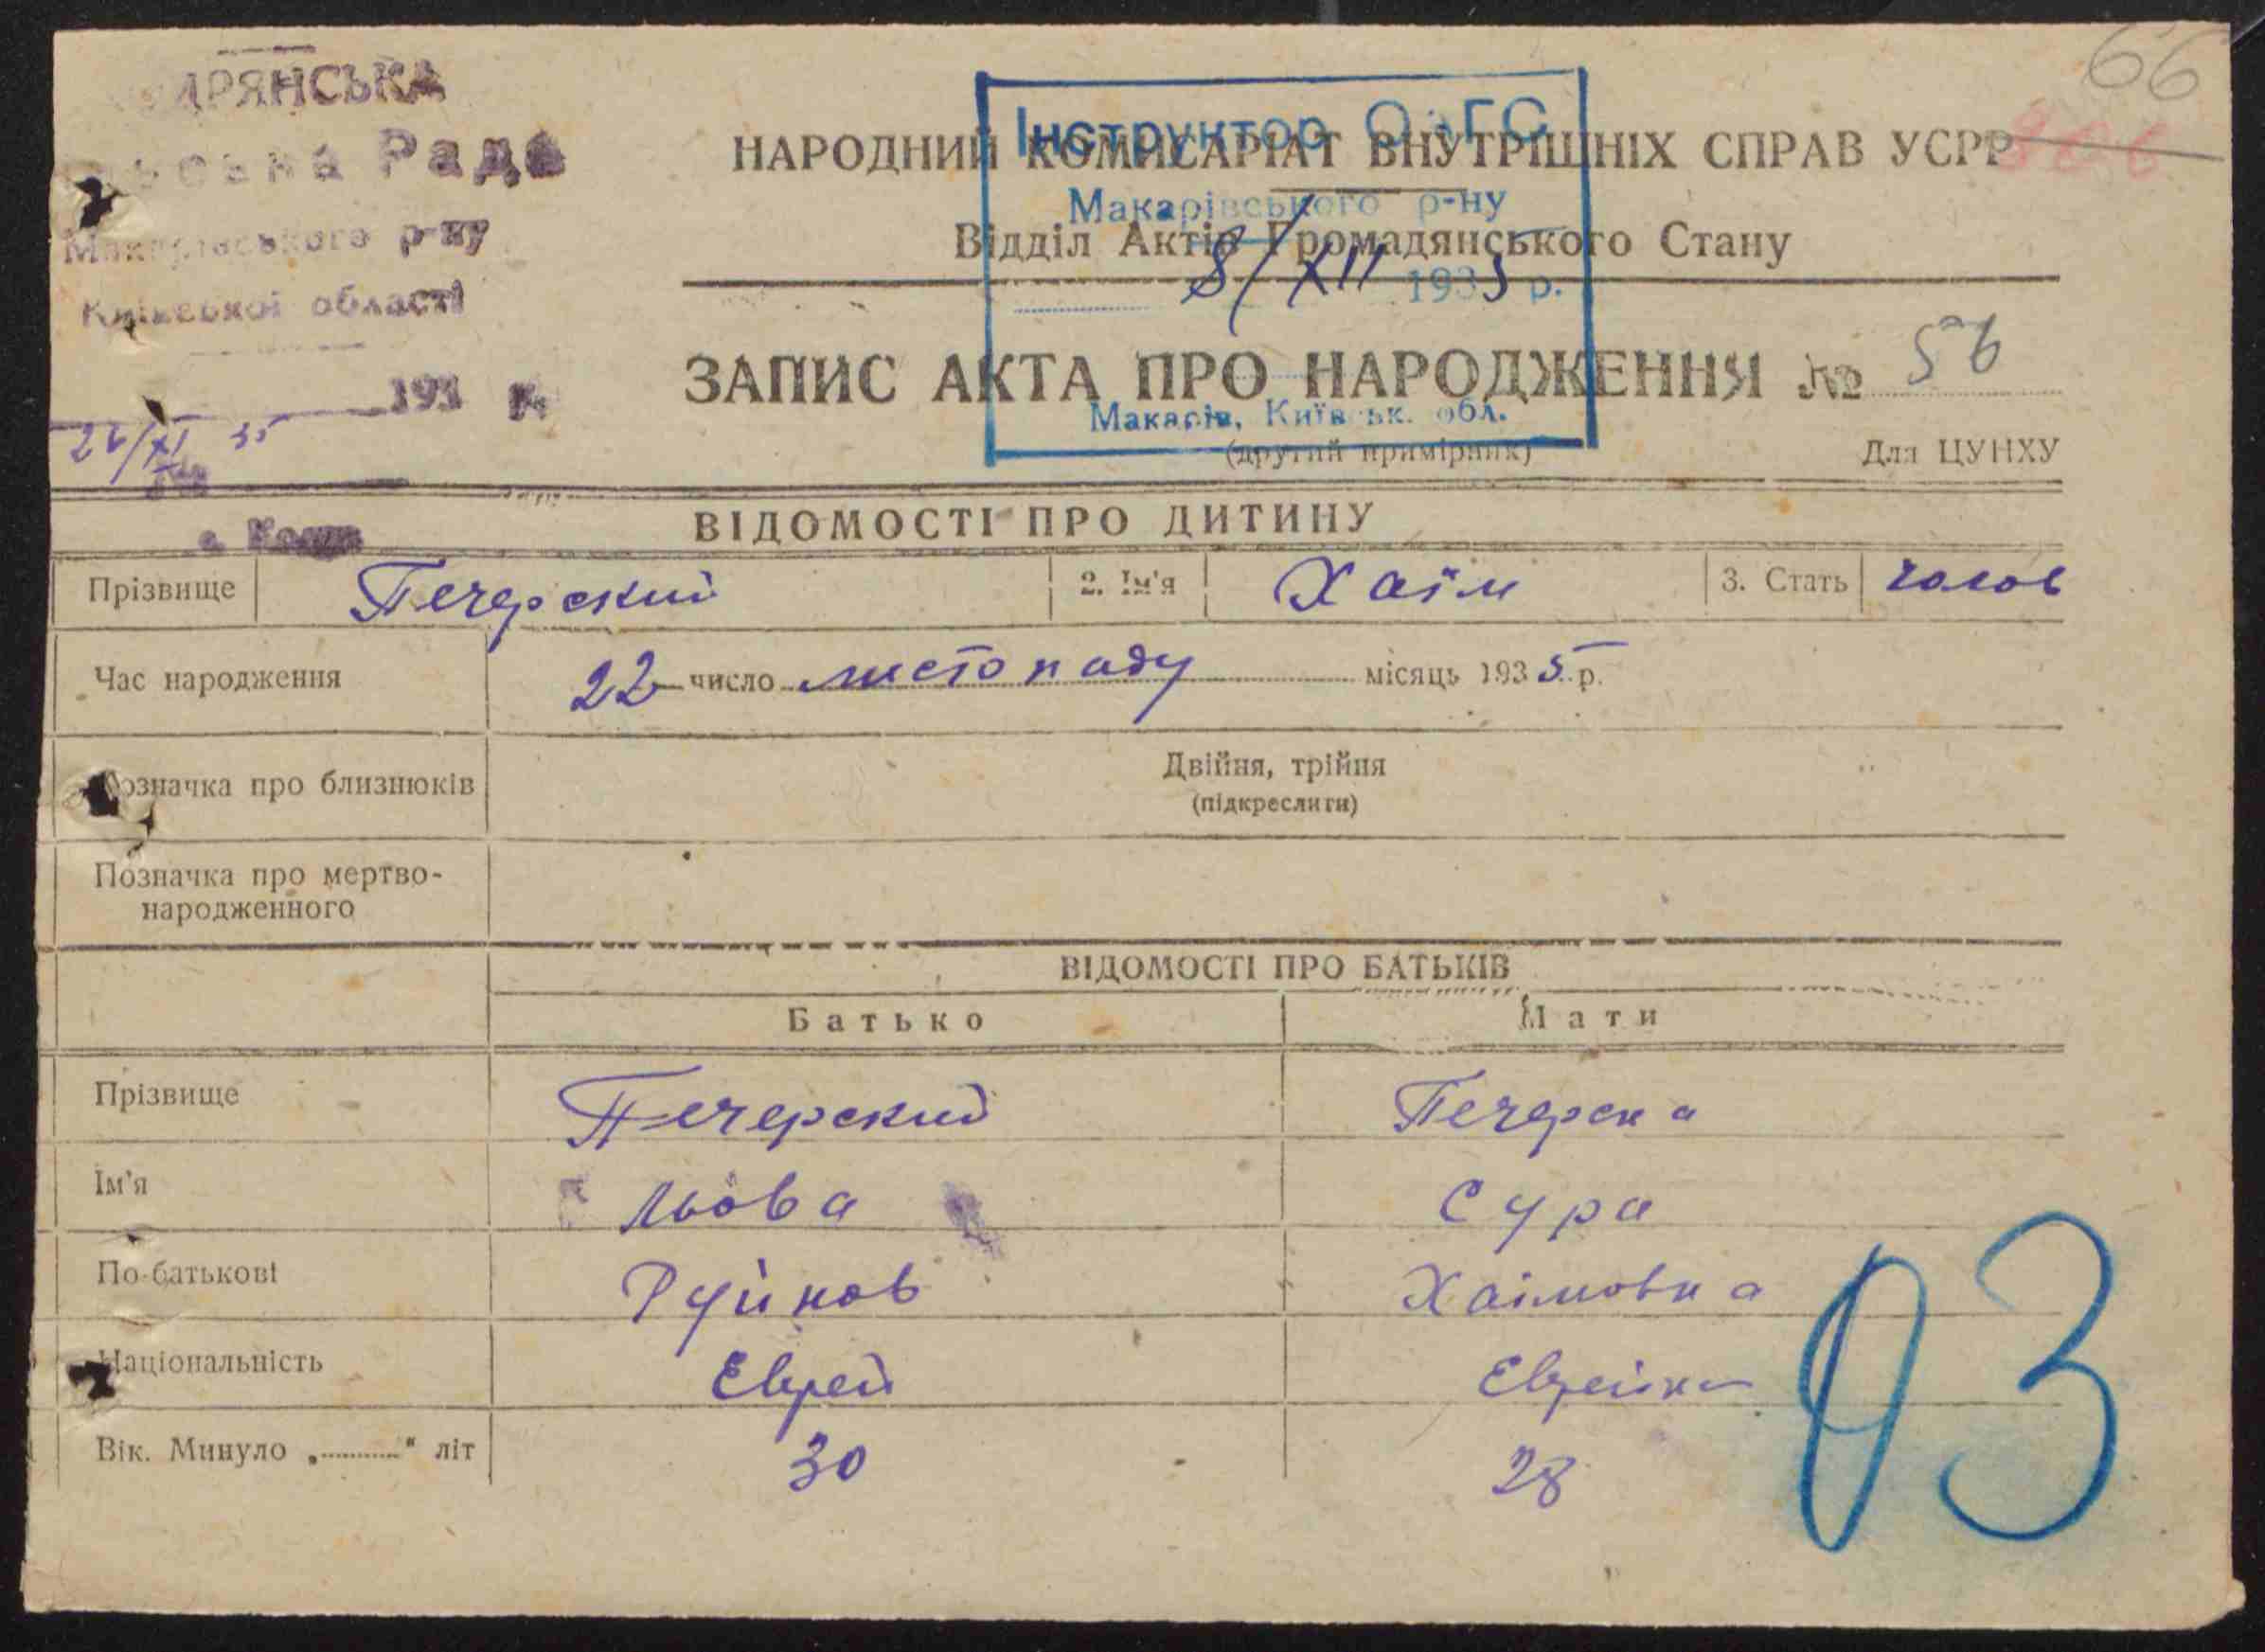 66
Рада
Макарівського р-ну
Київської області
193
26/XI 35
НАРОДНИЙ КОМИСАРІАТ ВНУТРІШНІХ СПРАВ УСРР
Відділ Актів Громадянського Стану
Інструктор ОАГС
Макарівського р-ну
8/XII 1935 р.
Макарів, Київськ. обл.
ЗАПИС АКТА ПРО НАРОДЖЕННЯ № 56
(другий примірник)
Для ЦУНХУ
ВІДОМОСТІ ПРО ДИТИНУ
Прізвище Печерский 2. Ім'я Хаїм 3. Стать чолов
Час народження 22 число листопаду місяць 1935 р.
Позначка про близнюків Двійня, трійня
(підкреслити)
Позначка про мертво-
народженного
ВІДОМОСТІ ПРО БАТЬКІВ
Батько Мати
Прізвище Печерский Печерска
Ім'я Льова Сура
По-батькові Хаімовна
Національність Еврей Еврейка
Вік. Минуло „..........“ літ 30 28
03